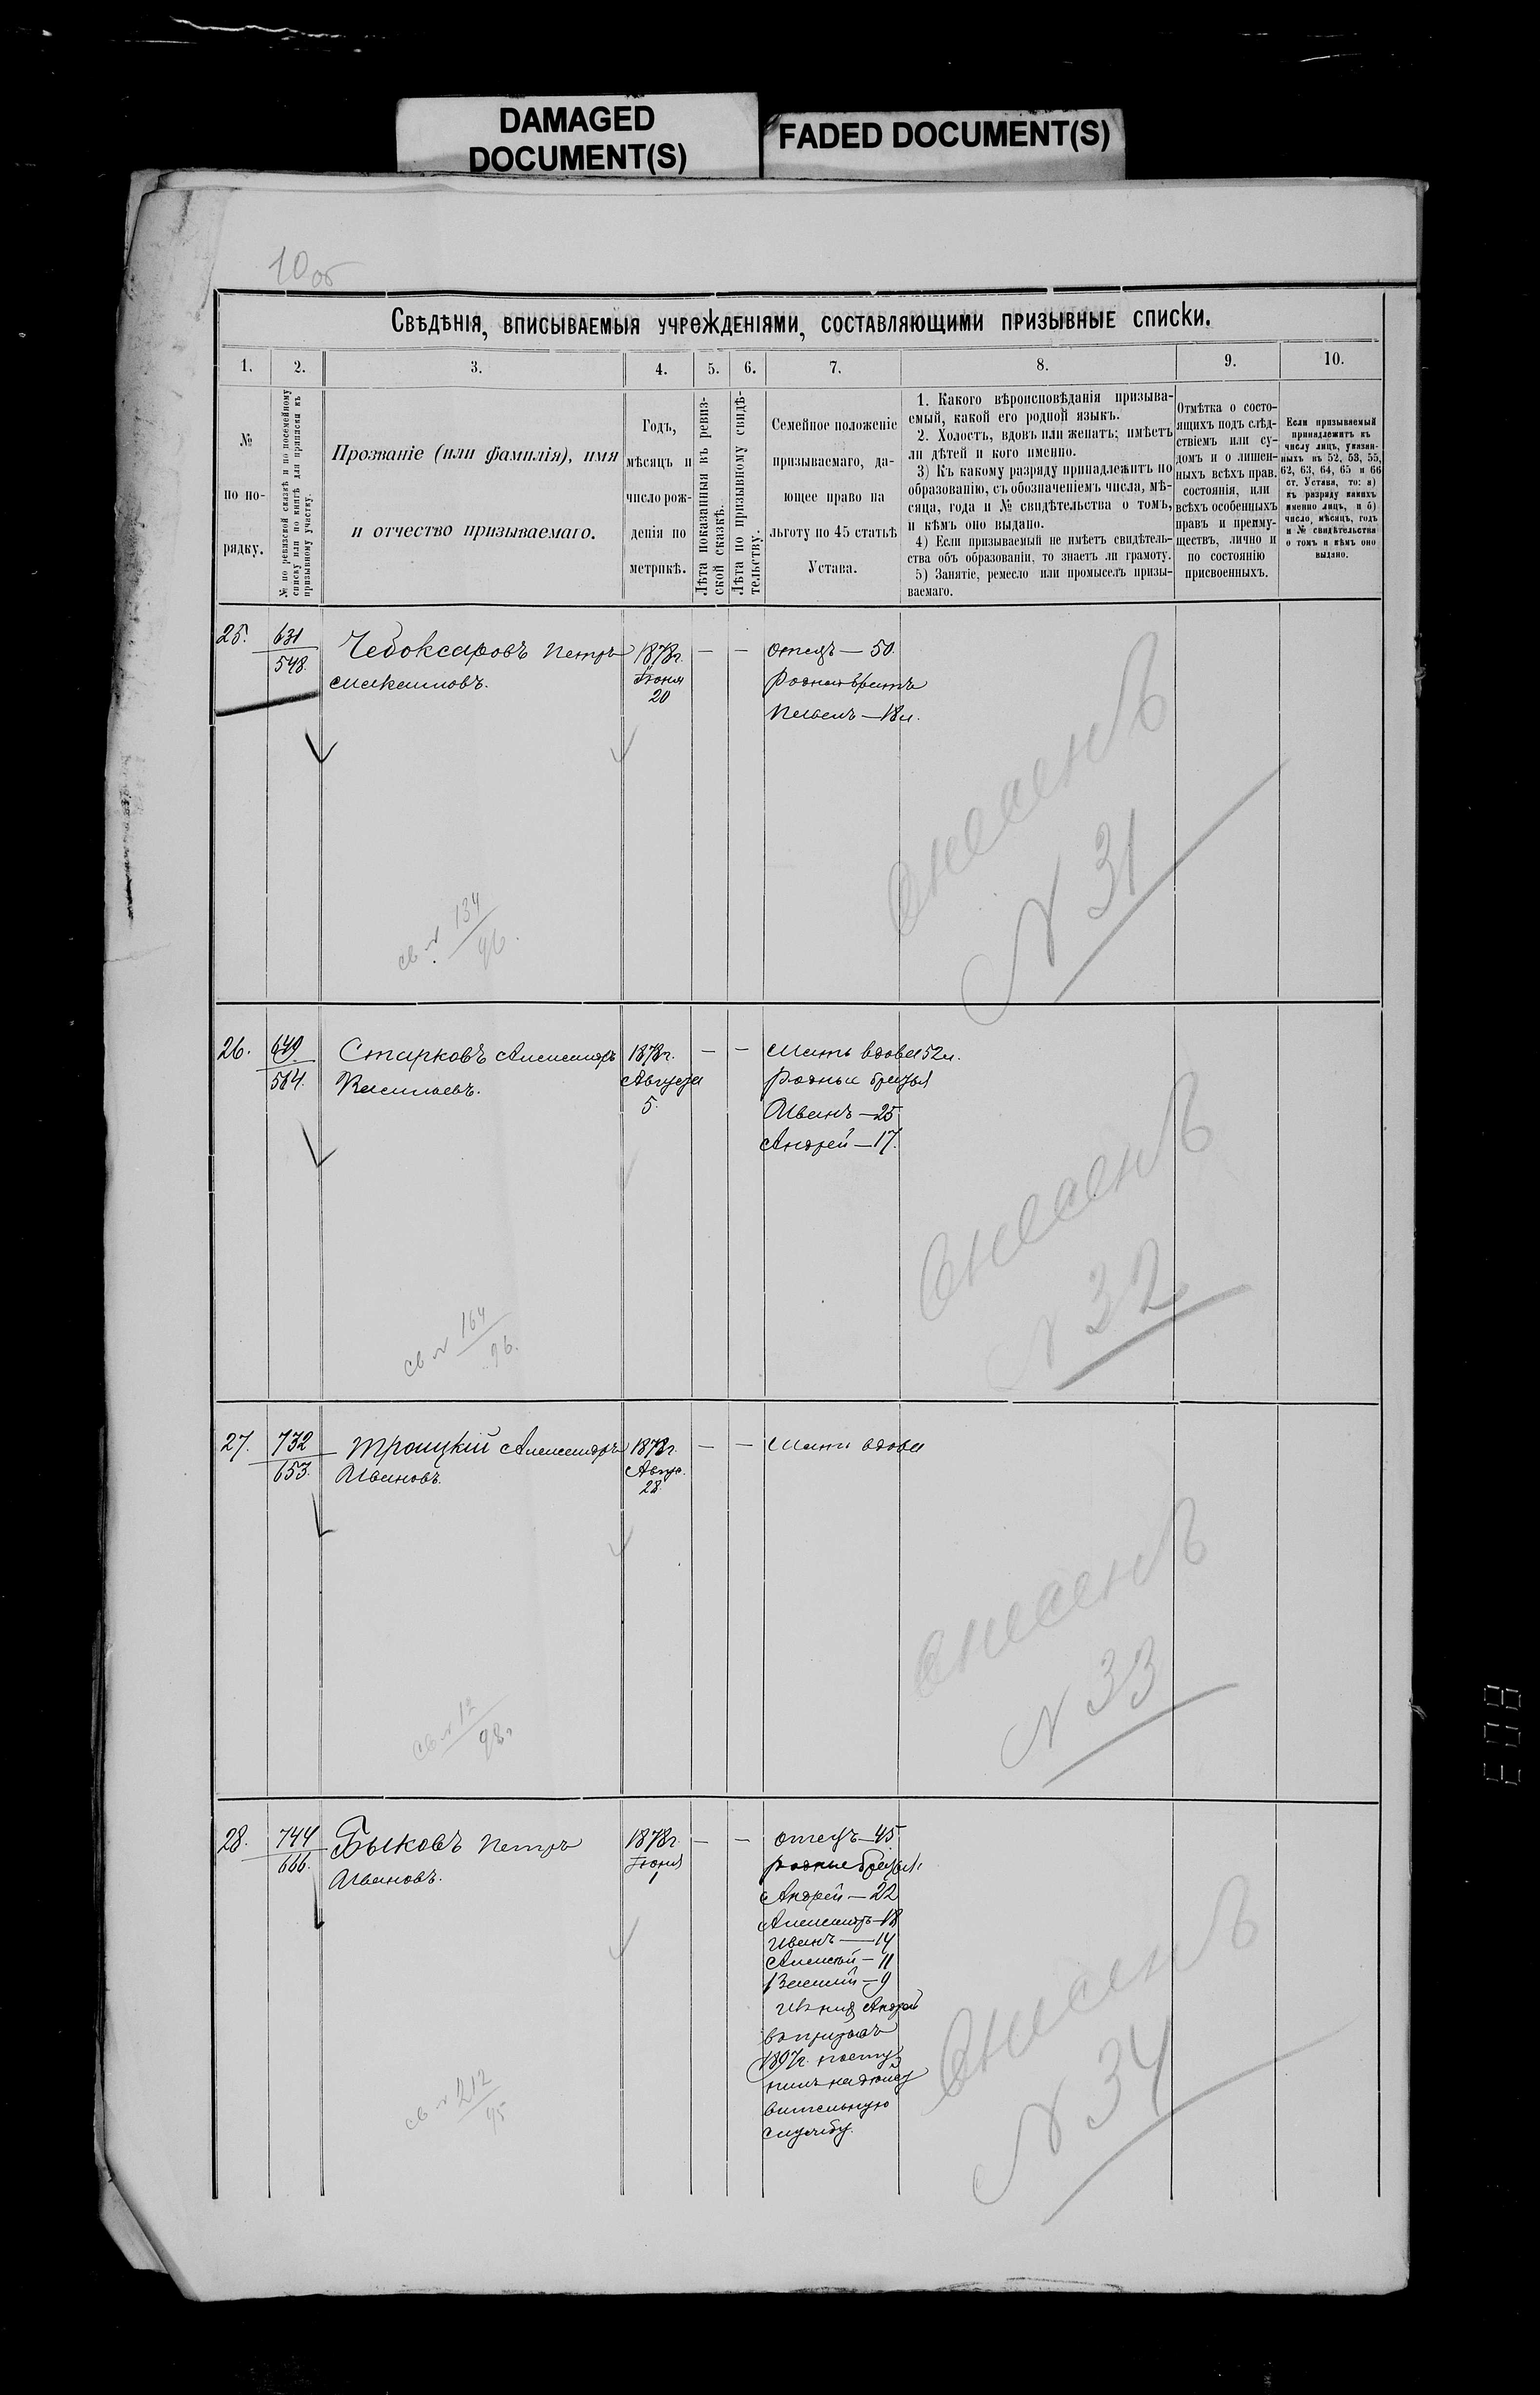 DAMAGED
DOCUMENT(S)
FADED DOCUMENT(S)
10 об
Свѣдѣнія, вписываемыя учрежденіями, составляющими призывные списки.
1.
2.
3.
4.
5.
6.
7.
8.
9.
10.
№
по по-
рядку.
№ по ревизской сказкѣ и по посемейному
списку или по книгѣ для приписки къ
призывному участку.
Прозваніе (или фамилія), имя
и отчество призываемаго.
Годъ,
мѣсяцъ и
число рож-
денія по
метрикѣ.
Лѣта показанныя въ ревиз-
ской сказкѣ.
Лѣта по призывному свидѣ-
тельству.
Семейное положеніе
призываемаго, да-
ющее право на
льготу по 45 статьѣ
Устава.
1. Какого вѣроисповѣданія призыва-
емый, какой его родной языкъ.
2. Холостъ, вдовъ или женатъ; имѣетъ
ли дѣтей и кого именно.
3) Къ какому разряду принадлежитъ по
образованію, съ обозначеніемъ числа, мѣ-
сяца, года и № свидѣтельства о томъ,
и кѣмъ оно выдано.
4) Если призываемый не имѣетъ свидѣтель-
ства объ образованіи, то знаетъ ли грамоту.
5) Занятіе, ремесло или промыселъ призы-
ваемаго.
Отмѣтка о состо-
ящихъ подъ слѣд-
ствіемъ или су-
домъ и о лишен-
ныхъ всѣхъ прав.
состоянія, или
всѣхъ особенныхъ
правъ и преиму-
ществъ, лично и
по состоянію
присвоенныхъ.
Если призываемый
принадлежитъ къ
числу лицъ, указан-
ныхъ въ 52, 53, 55,
62, 63, 64, 65 и 66
ст. Устава, то: а)
къ разряду какихъ
именно лицъ, и б)
число, мѣсяцъ, годъ
и № свидѣтельства
о томъ и кѣмъ оно
выдано.
25.
631
548.
Чебоксаровъ Петръ
Максимовъ.
1878г.
Іюня
20
—
—
Отецъ — 50.
Родной братъ
Павелъ — 18л.
Внесенъ
N 31
св N 134
96.
26.
649
564.
Старковъ Александръ
Васильевъ.
1878г.
Августа
5.
—
—
Мать вдова 52л.
Родные братья
Иванъ — 25
Андрей — 17.
Внесенъ
N 32
св N 164
96.
27.
732
653.
Троицкій Александръ
Ивановъ.
1878г.
Август.
28.
—
—
Мать вдова
Внесенъ
N 33
св N 12
98.
28.
744
666.
Быковъ Петръ
Ивановъ.
1878г.
Іюня
1
—
—
Отецъ — 45.
родные братья:
Андрей — 22
Александръ — 18
Иванъ — 14
Алексѣй — 11
Василій — 9
Изъ нихъ Андрей
въ призывъ
1897г. посту-
пилъ на дѣйст-
вительную
службу.
Внесенъ
N 34
св N 212
95
E08